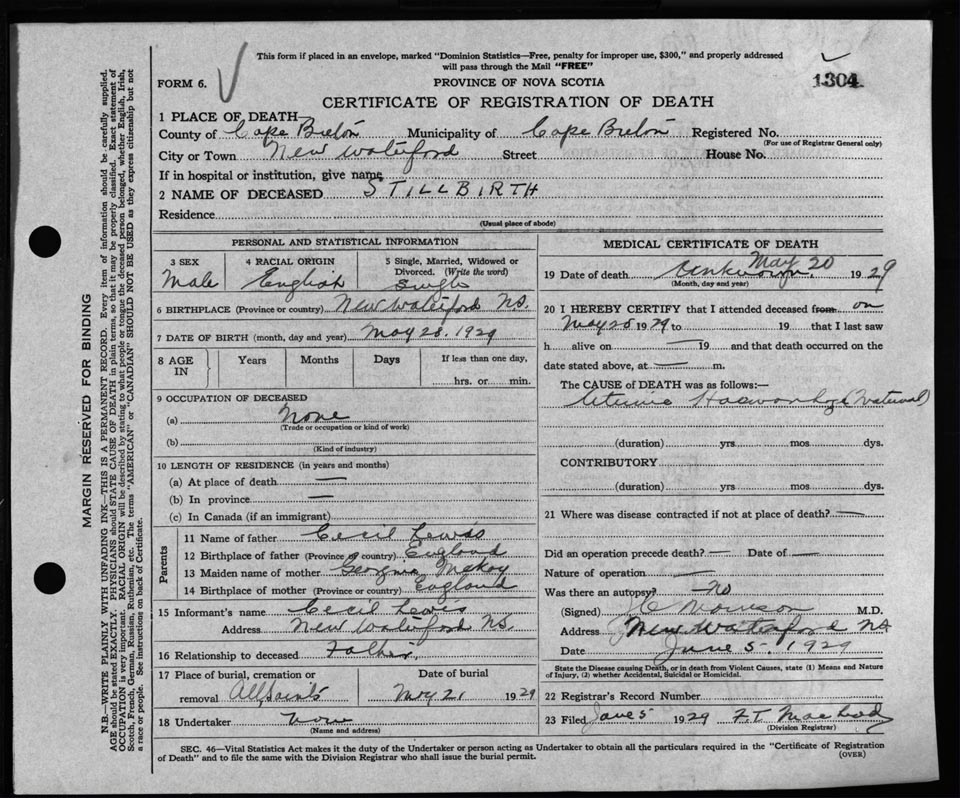 This form if placed in an envelope, marked "Dominion Statistics—Free, penalty for improper use, $300," and properly addressed
will pass through the Mail "FREE"
FORM 6.
PROVINCE OF NOVA SCOTIA
1304
CERTIFICATE OF REGISTRATION OF DEATH
1 PLACE OF DEATH
County of Cape Breton Municipality of Cape Breton Registered No.
(For use of Registrar General only)
City or Town New Waterford Street House No.
If in hospital or institution, give name
2 NAME OF DECEASED STILLBIRTH
Residence
(Usual place of abode)
PERSONAL AND STATISTICAL INFORMATION
3 SEX Male
4 RACIAL ORIGIN English
5 Single, Married, Widowed or
Divorced. (Write the word)
Single
6 BIRTHPLACE (Province or country) New Waterford N.S.
7 DATE OF BIRTH (month, day and year) May 28, 1929
8 AGE IN Years Months Days If less than one day,
hrs. or min.
9 OCCUPATION OF DECEASED
(a) None
(Trade or occupation or kind of work)
(b)
(Kind of industry)
10 LENGTH OF RESIDENCE (in years and months)
(a) At place of death —
(b) In province —
(c) In Canada (if an immigrant)
Parents
11 Name of father Cecil Lewis
12 Birthplace of father (Province or country) England
13 Maiden name of mother Georgina McKoy
14 Birthplace of mother (Province or country) England
15 Informant's name Cecil Lewis
Address New Waterford N.S.
16 Relationship to deceased Father
17 Place of burial, cremation or
removal All Saints
Date of burial
May 21 1929
18 Undertaker None
(Name and address)
MEDICAL CERTIFICATE OF DEATH
19 Date of death Unknown May 20 1929
(Month, day and year)
20 I HEREBY CERTIFY that I attended deceased from on
May 28 1929 to — 19 that I last saw
h alive on — 19 and that death occurred on the
date stated above, at — m.
The CAUSE of DEATH was as follows:—
Uterine Haemorrhage (Maternal)
(duration) yrs mos dys.
CONTRIBUTORY
(duration) yrs. mos dys.
21 Where was disease contracted if not at place of death? —
Did an operation precede death? — Date of —
Nature of operation —
Was there an autopsy? No
(Signed) Morrison M.D.
Address New Waterford NS
Date June 5 - 1929
State the Disease causing Death, or in death from Violent Causes, state (1) Means and Nature
of Injury, (2) whether Accidental, Suicidal or Homicidal.
22 Registrar's Record Number
23 Filed June 5 1929 F.T. MacLeod
(Division Registrar)
SEC. 46—Vital Statistics Act makes it the duty of the Undertaker or person acting as Undertaker to obtain all the particulars required in the "Certificate of Registration
of Death" and to file the same with the Division Registrar who shall issue the burial permit.
(OVER)
MARGIN RESERVED FOR BINDING
N.B.—WRITE PLAINLY WITH UNFADING INK—THIS IS A PERMANENT RECORD. Every item of information should be carefully supplied.
AGE should be stated EXACTLY. PHYSICIANS should STATE CAUSE OF DEATH in plain terms, so that it may be properly classified. Exact statement of
OCCUPATION is very important. RACIAL ORIGIN will be described by stating to what people or tongue the deceased person belonged, whether English, Irish,
Scotch, French, German, Russian, Ruthenian, etc. The terms "AMERICAN" or "CANADIAN" SHOULD NOT BE USED as they express citizenship but not
a race or people. See instructions on back of Certificate.